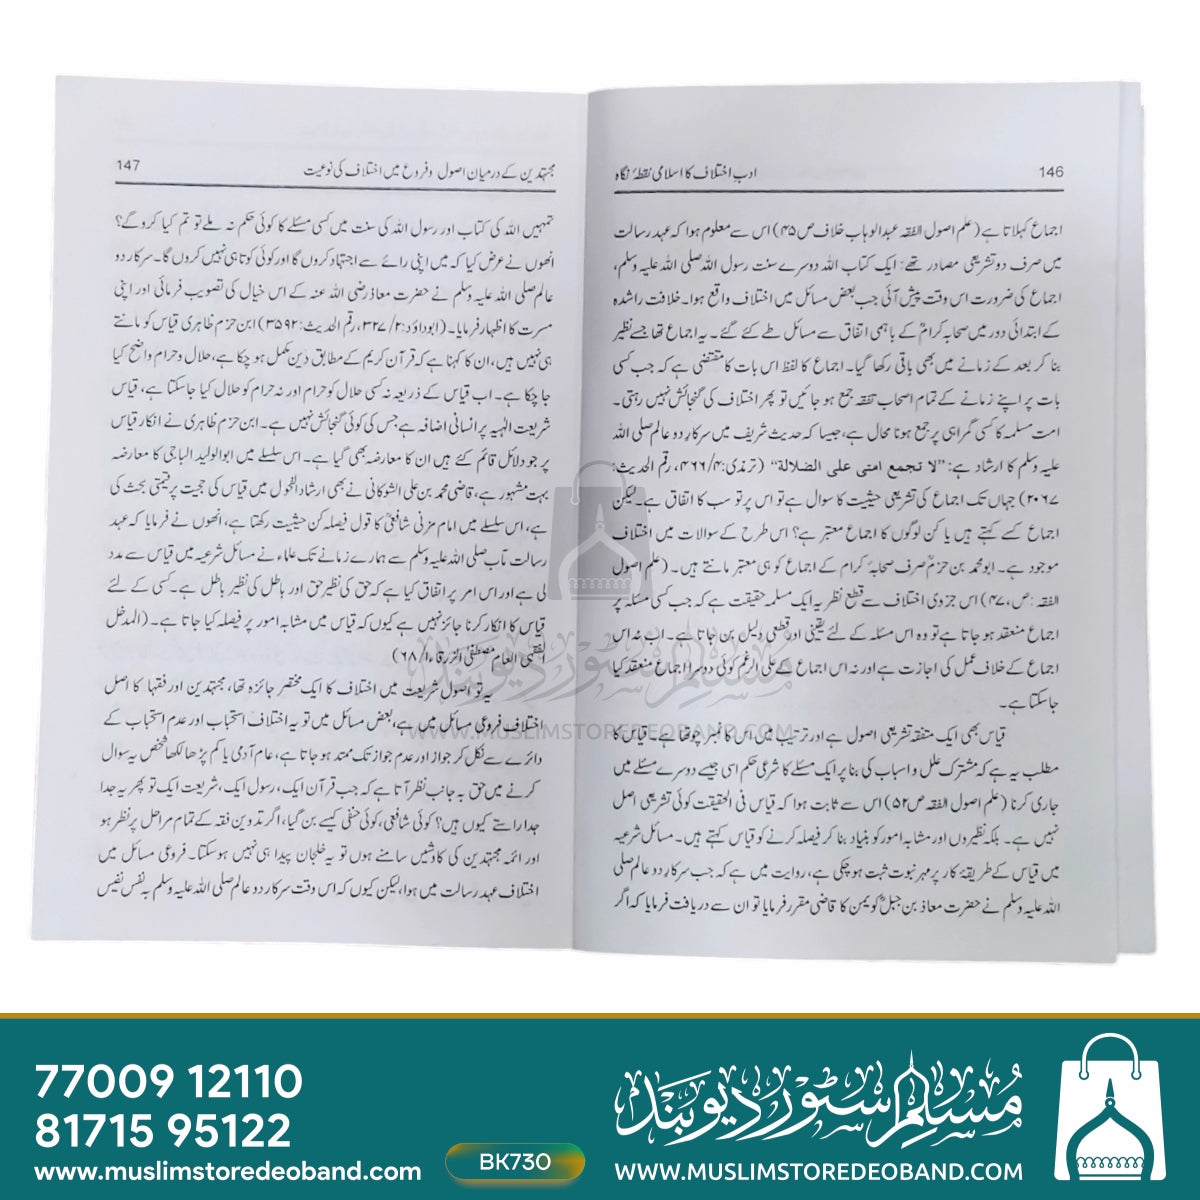 146
ادب اختلاف کا اسلامی نقطۂ نگاہ
اجماع کہلاتا ہے (علم اصول الفقہ عبدالوہاب خلاف ص۴۵) اس سے معلوم ہوا کہ عہد رسالت
میں صرف دو تشریعی مصادر تھے: ایک کتاب اللہ دوسرے سنت رسول اللہ صلی اللہ علیہ وسلم،
اجماع کی ضرورت اس وقت پیش آئی جب بعض مسائل میں اختلاف واقع ہوا۔ خلافت راشدہ
کے ابتدائی دور میں صحابہ کرامؓ کے باہمی اتفاق سے مسائل طے کئے گئے۔ یہ اجماع تھا جسے نظیر
بنا کر بعد کے زمانے میں بھی باقی رکھا گیا۔ اجماع کا لفظ اس بات کا مقتضی ہے کہ جب کسی
بات پر اپنے زمانے کے تمام اصحاب تفقہ جمع ہو جائیں تو پھر اختلاف کی گنجائش نہیں رہتی۔
امت مسلمہ کا کسی گمراہی پر جمع ہونا محال ہے، جیسا کہ حدیث شریف میں سرکار دو عالم صلی اللہ
علیہ وسلم کا ارشاد ہے: ”لا تجمع امتی علی الضلالة“ (ترمذی: ۴/۴۶۶، رقم الحدیث:
۲۰۶۷) جہاں تک اجماع کی تشریعی حیثیت کا سوال ہے تو اس پر تو سب کا اتفاق ہے۔ لیکن
اجماع کسے کہتے ہیں یا کن لوگوں کا اجماع معتبر ہے؟ اس طرح کے سوالات میں اختلاف
موجود ہے۔ ابو محمد بن حزمؒ صرف صحابہ کرام کے اجماع کو ہی معتبر مانتے ہیں۔ (علم اصول
الفقہ: ص، ۴۷) اس جزوی اختلاف سے قطع نظر یہ ایک مسلمہ حقیقت ہے کہ جب کسی مسئلہ پر
اجماع منعقد ہو جاتا ہے تو وہ اس مسئلہ کے لئے یقینی اور قطعی دلیل بن جاتا ہے۔ اب نہ اس
اجماع کے خلاف عمل کی اجازت ہے اور نہ اس اجماع کے علی الرغم کوئی دوسرا اجماع منعقد کیا
جاسکتا ہے۔
قیاس بھی ایک متفقہ تشریعی اصول ہے اور ترتیب میں اس کا نمبر چوتھا ہے۔ قیاس کا
مطلب یہ ہے کہ مشترک علل و اسباب کی بنا پر ایک مسئلے کا شرعی حکم اسی جیسے دوسرے مسئلے میں
جاری کرنا (علم اصول الفقہ ص۵۲) اس سے ثابت ہوا کہ قیاس فی الحقیقت کوئی تشریعی اصل
نہیں ہے۔ بلکہ نظیروں اور مشابہ امور کو بنیاد بنا کر فیصلہ کرنے کو قیاس کہتے ہیں۔ مسائل شرعیہ
میں قیاس کے طریقۂ کار پر مہر نبوت ثبت ہو چکی ہے، روایت میں ہے کہ جب سرکار دو عالم صلی
اللہ علیہ وسلم نے حضرت معاذ بن جبلؓ کو یمن کا قاضی مقرر فرمایا تو ان سے دریافت فرمایا کہ اگر
147
مجتہدین کے درمیان اصول و فروع میں اختلاف کی نوعیت
تمہیں اللہ کی کتاب اور رسول اللہ کی سنت میں کسی مسئلے کا کوئی حکم نہ ملے تو تم کیا کرو گے؟
انھوں نے عرض کیا کہ میں اپنی رائے سے اجتہاد کروں گا اور کوئی کوتاہی نہیں کروں گا۔ سرکار دو
عالم صلی اللہ علیہ وسلم نے حضرت معاذ رضی اللہ عنہ کے اس خیال کی تصویب فرمائی اور اپنی
مسرت کا اظہار فرمایا۔ (ابوداؤد: ۲/۳۲۷، رقم الحدیث: ۳۵۹۲) ابن حزم ظاہری قیاس کو مانتے
ہی نہیں ہیں، ان کا کہنا ہے کہ قرآن کریم کے مطابق دین مکمل ہو چکا ہے، حلال و حرام واضح کیا
جا چکا ہے۔ اب قیاس کے ذریعہ نہ کسی حلال کو حرام اور نہ حرام کو حلال کیا جاسکتا ہے، قیاس
شریعت الٰہیہ پر انسانی اضافہ ہے، جس کی کوئی گنجائش نہیں ہے۔ ابن حزم ظاہری نے انکار قیاس
پر جو دلائل قائم کئے ہیں ان کا معارضہ بھی گیا ہے۔ اس سلسلے میں ابوالولید الباجی کا معارضہ
بہت مشہور ہے، قاضی محمد بن علی الشوکانی نے بھی ارشاد الفحول میں قیاس کی حجیت پر قیمتی بحث کی
ہے، اس سلسلے میں امام مزنی شافعیؒ کا قول فیصلہ کن حیثیت رکھتا ہے، انھوں نے فرمایا کہ عہد
رسالت مآب صلی اللہ علیہ وسلم سے ہمارے زمانے تک علماء نے مسائل شرعیہ میں قیاس سے مدد
لی ہے اور اس امر پر اتفاق کیا ہے کہ حق کی نظیر حق اور باطل کی نظیر باطل ہے۔ کسی کے لئے
قیاس کا انکار کرنا جائز نہیں ہے کیوں کہ قیاس میں مشابہ امور پر فیصلہ کیا جاتا ہے۔ (المدخل
الفقہی العام مصطفیٰ الزرقاء ۱/۶۸)
یہ تو اصول شریعت میں اختلاف کا ایک مختصر جائزہ تھا، مجتہدین اور فقہا کا اصل
اختلاف فروعی مسائل میں ہے، بعض مسائل میں تو یہ اختلاف استحباب اور عدم استحباب کے
دائرے سے نکل کر جواز اور عدم جواز تک ممتد ہو جاتا ہے، عام آدمی یا کم پڑھا لکھا شخص یہ سوال
کرنے میں حق بہ جانب نظر آتا ہے کہ جب قرآن ایک، رسول ایک، شریعت ایک تو پھر یہ جدا
جدا راستے کیوں ہیں؟ کوئی شافعی، کوئی حنفی کیسے بن گیا، اگر تدوین فقہ کے تمام مراحل پر نظر ہو
اور ائمہ مجتہدین کی کاوشیں سامنے ہوں تو یہ خلجان پیدا ہی نہیں ہوسکتا۔ فروعی مسائل میں
اختلاف عہد رسالت میں ہوا، لیکن کیوں کہ اس وقت سرکار دو عالم صلی اللہ علیہ وسلم بہ نفس نفیس
مسلم سٹور دیوبند
WWW.MUSLIMSTOREDEOBAND.COM
77009 12110
81715 95122
www.muslimstoredeoband.com
BK730
مسلم سٹور دیوبند
WWW.MUSLIMSTOREDEOBAND.COM